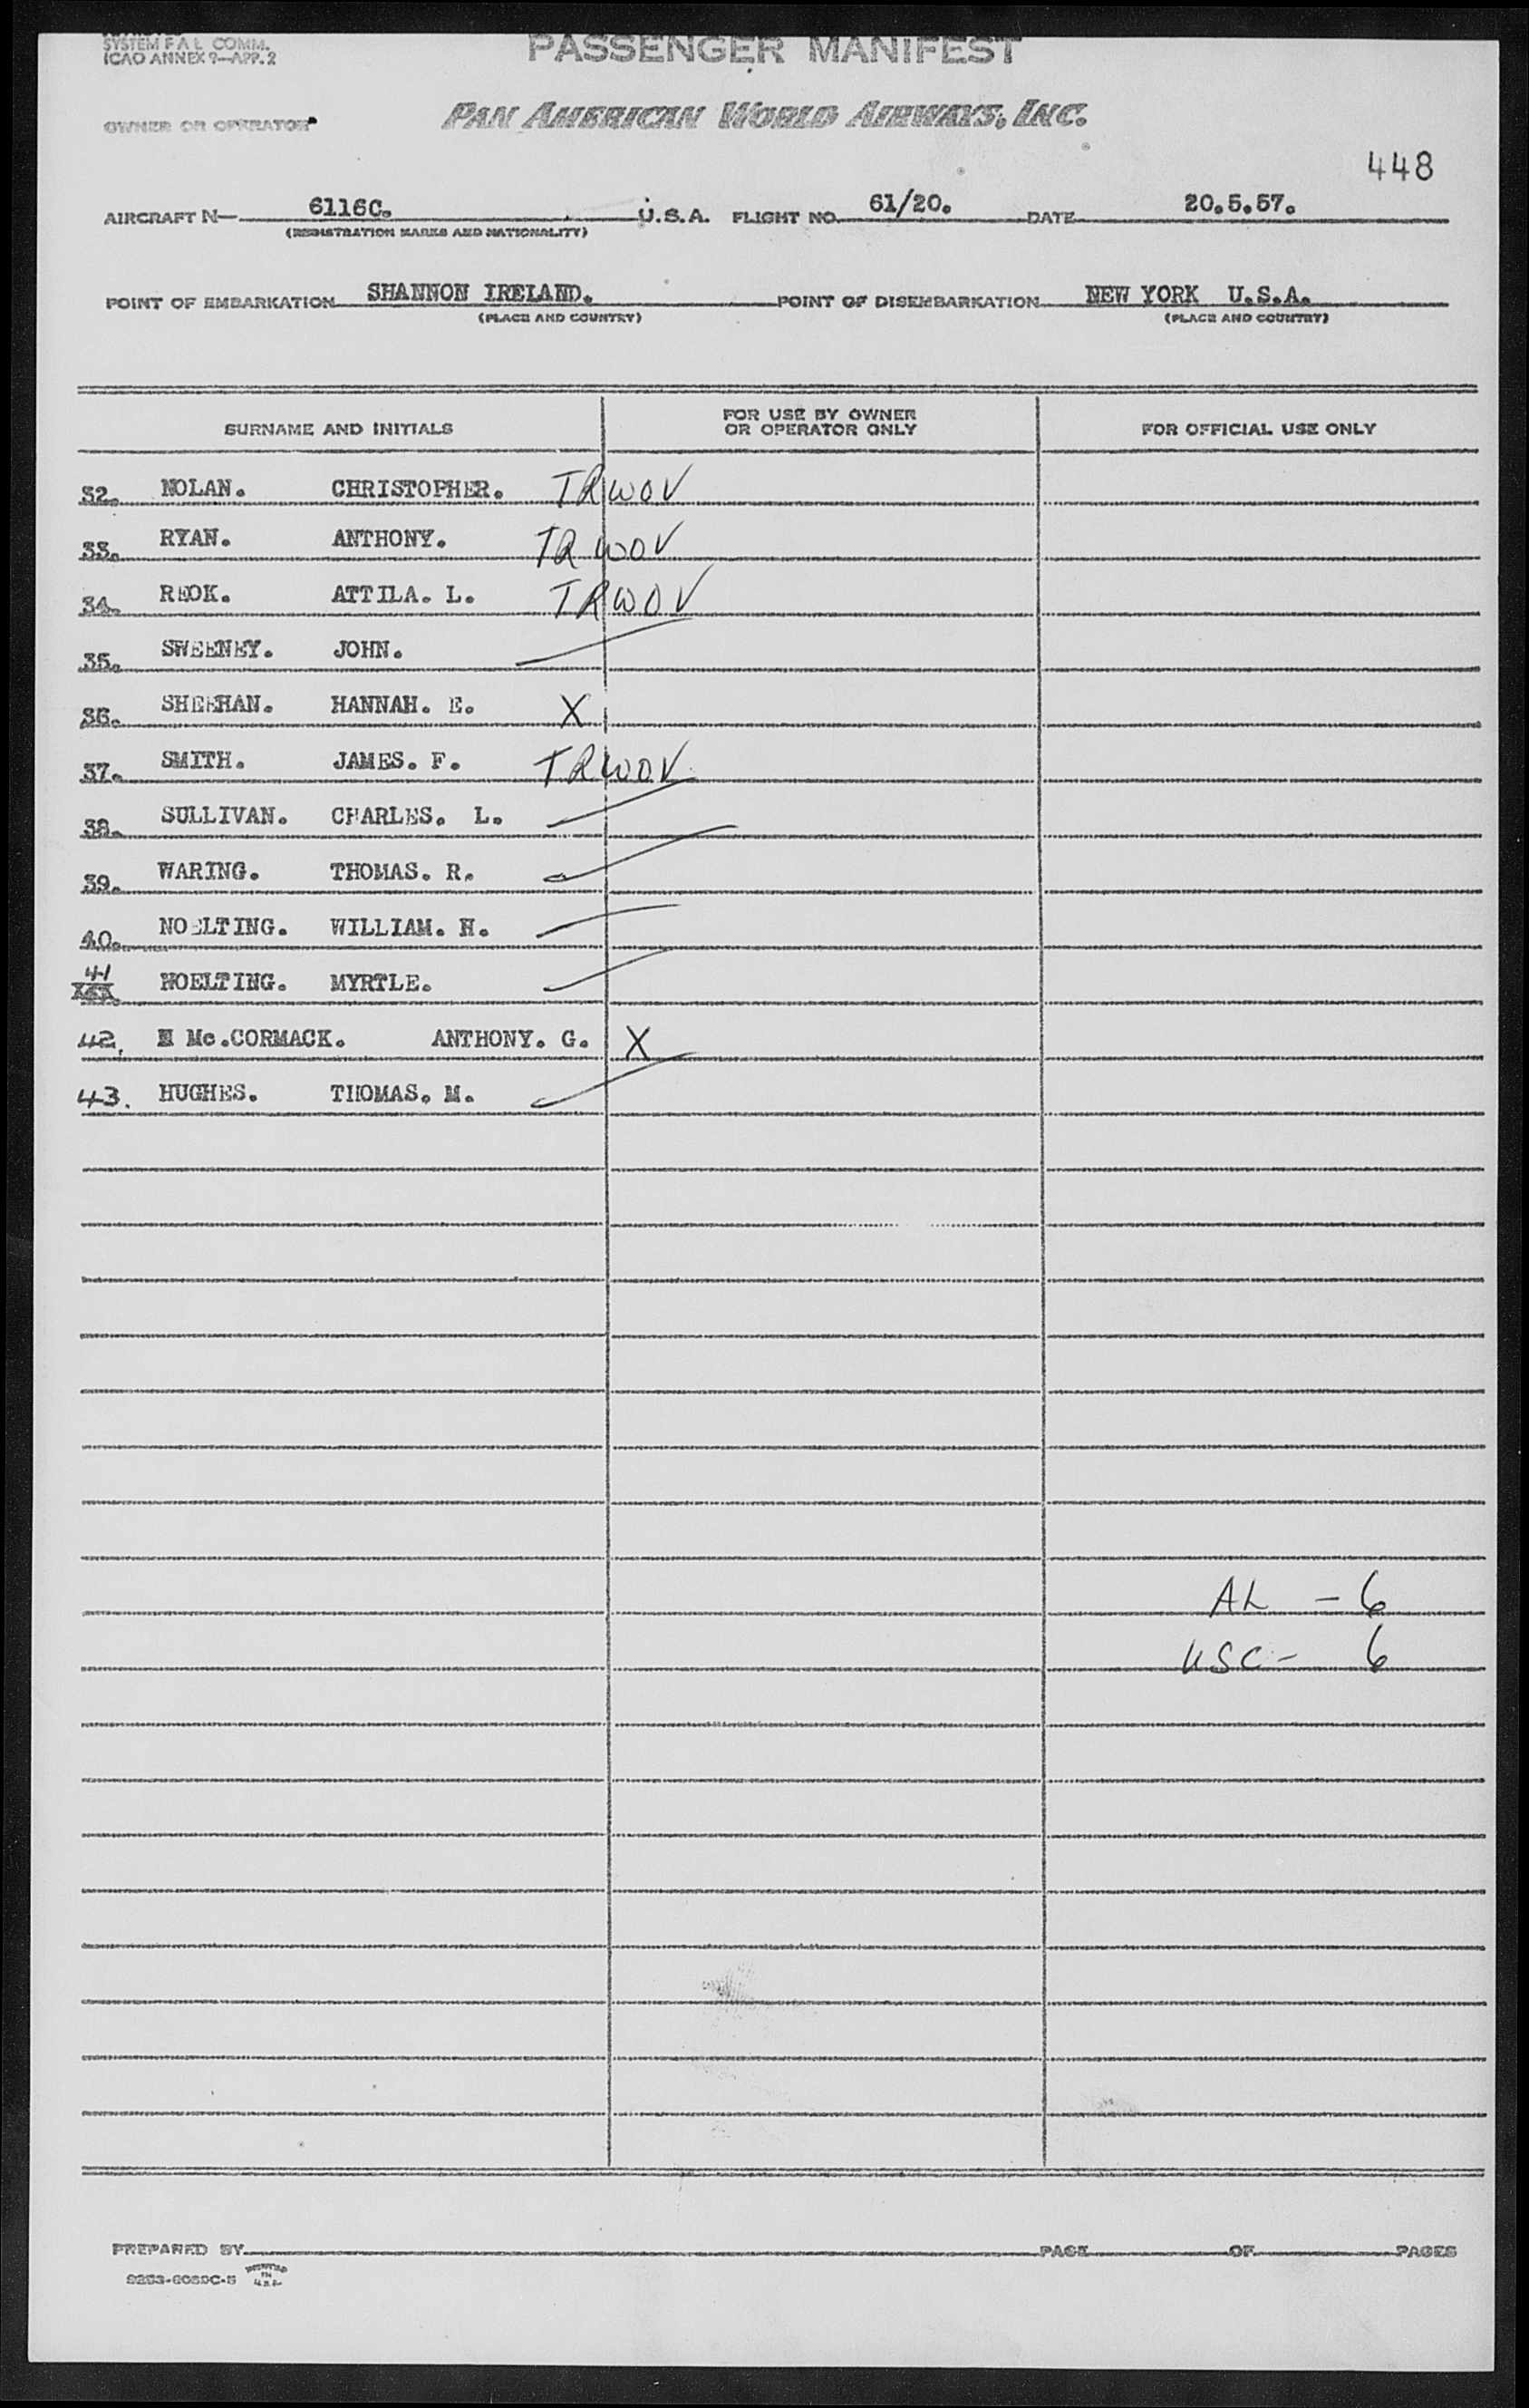 SYSTEM F A L COMM.
ICAO ANNEX 9—APP. 2
PASSENGER MANIFEST
OWNER OR OPERATOR
PAN AMERICAN WORLD AIRWAYS, INC.
448
AIRCRAFT N— 6116C. U.S.A. FLIGHT NO. 61/20. DATE 20.5.57.
(REGISTRATION MARKS AND NATIONALITY)
POINT OF EMBARKATION SHANNON IRELAND. POINT OF DISEMBARKATION NEW YORK U.S.A.
(PLACE AND COUNTRY) (PLACE AND COUNTRY)
SURNAME AND INITIALS
FOR USE BY OWNER
OR OPERATOR ONLY
FOR OFFICIAL USE ONLY
32. NOLAN. CHRISTOPHER. TRWOV
33. RYAN. ANTHONY. TRWOV
34. REOK. ATTILA. L. TRWOV
35. SWEENEY. JOHN.
36. SHEEHAN. HANNAH. E. X
37. SMITH. JAMES. F. TRWOV
38. SULLIVAN. CHARLES. L.
39. WARING. THOMAS. R.
40. NOELTING. WILLIAM. H.
41 NOELTING. MYRTLE.
42. Mc.CORMACK. ANTHONY. G. X
43. HUGHES. THOMAS. M.
AL – 6
USC – 6
PREPARED BY PAGE OF PAGES